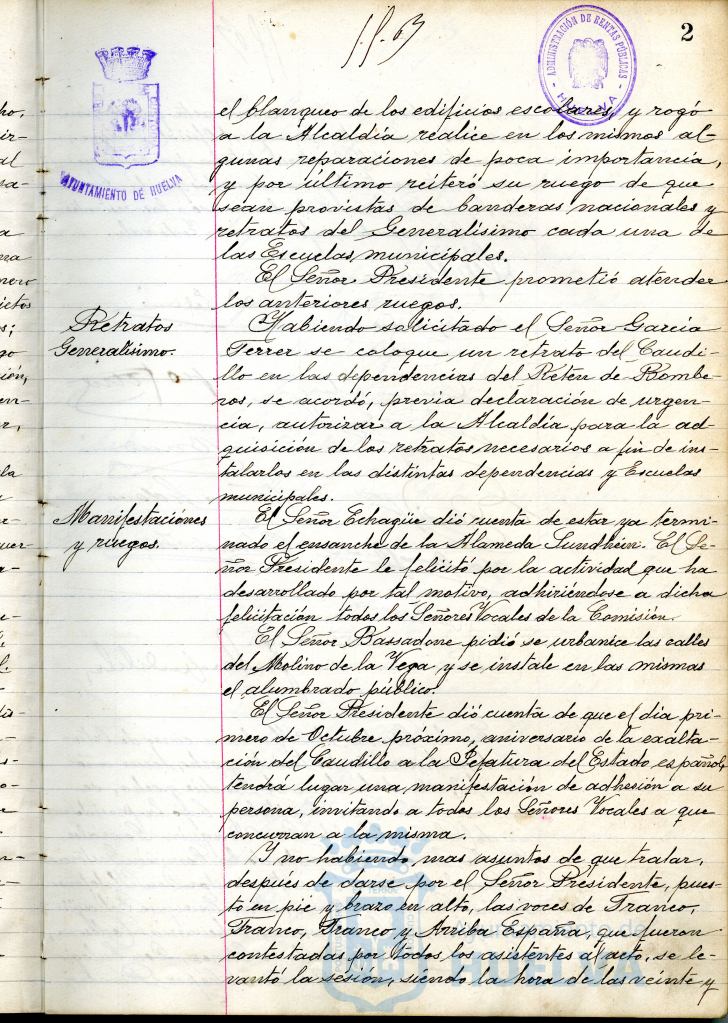 f. f. 63
2
ADMINISTRACIÓN DE RENTAS PÚBLICAS
HUELVA
AYUNTAMIENTO DE HUELVA
el blanqueo de los edificios escolares, y rogó
a la Alcaldía realice en los mismos al-
gunas reparaciones de poca importancia,
y por último reiteró su ruego de que
sean provistas de banderas nacionales y
retratos del Generalísimo cada una de
las Escuelas municipales.
El Señor Presidente prometió atender
los anteriores ruegos.
Retratos
Generalísimo.
Habiendo solicitado el Señor García
Ferrer se coloque un retrato del Caudi-
llo en las dependencias del Retén de Bombe-
ros, se acordó, previa declaración de urgen-
cia, autorizar a la Alcaldía para la ad-
quisición de los retratos necesarios a fin de ins-
talarlos en las distintas dependencias y Escuelas
municipales.
Manifestaciónes
y ruegos.
El Señor Echagüe dió cuenta de estar ya termi-
nado el ensanche de la Alameda Sundhein. El Se-
ñor Presidente le felicitó por la actividad que ha
desarrollado por tal motivo, adhiriéndose a dicha
felicitación todos los Señores Vocales de la Comisión.
El Señor Bassadone pidió se urbanice las calles
del Molino de la Vega y se instale en las mismas
el alumbrado público.
El Señor Presidente dió cuenta de que el día pri-
mero de Octubre próximo, aniversario de la exalta-
ción del Caudillo a la Jefatura del Estado español,
tendrá lugar una manifestación de adhesión a su
persona, invitando a todos los Señores Vocales a que
concurran a la misma.
Y no habiendo mas asuntos de que tratar,
después de darse por el Señor Presidente, pues-
to en pié y brazo en alto, las voces de Franco,
Franco, Franco y Arriba España, que fueron
contestadas por todos los asistentes al acto, se le-
vantó la sesión, siendo la hora de las veinte y
HUELVA